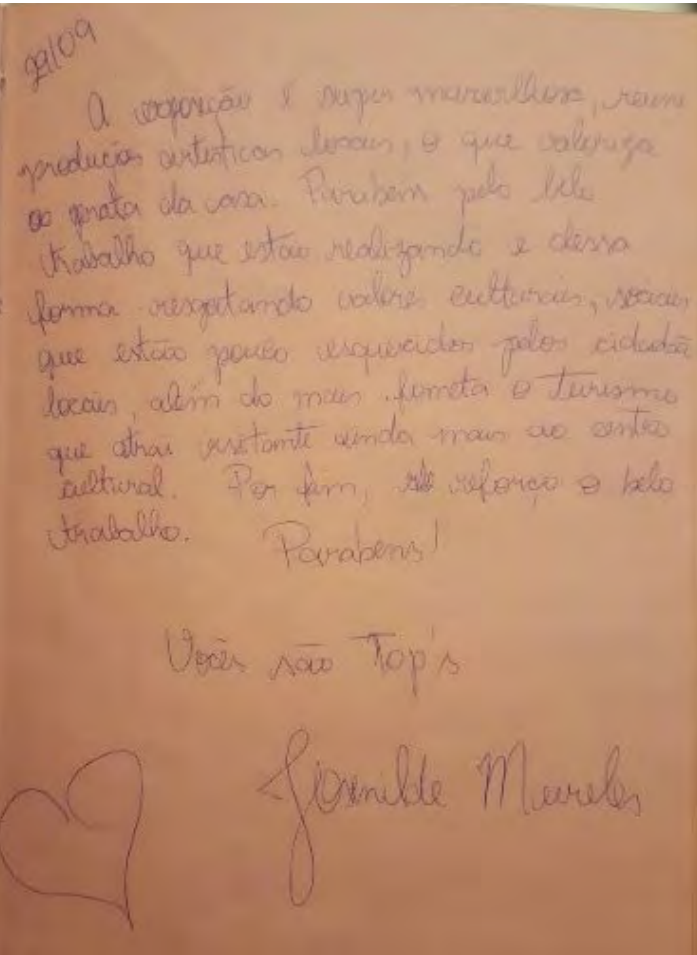 29/09
A exposição é super maravilhosa, reune
produções artisticas locais, o que valoriza
ao prata da casa. Parabens pelo belo
trabalho que estão realizando e dessa
forma resgatando valores culturais, sociais
que estão pouco esquecidos pelos cidadão
locais, além do mais fometa o turismo
que atrai visitante ainda mais ao centro
cultural. Por fim, reforço o belo
trabalho. Parabens!
Vocês são Top's